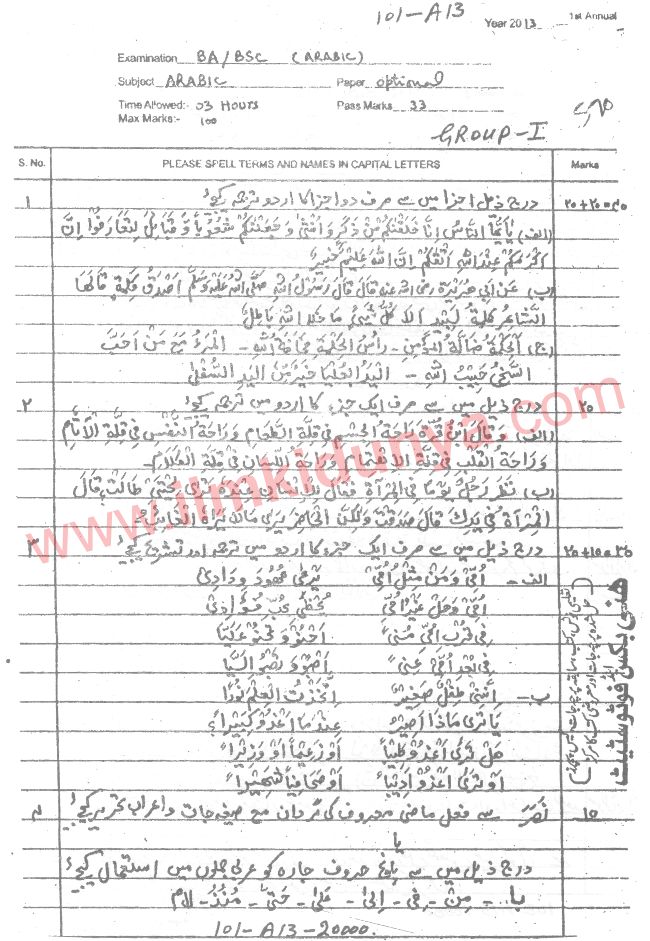 101-A13
Year 2013 1st Annual
Examination BA/BSC (ARABIC)
Subject ARABIC Paper optional
Time Allowed:- 03 HOURS Pass Marks 33
Max Marks:- 100
GROUP-I
S. No. PLEASE SPELL TERMS AND NAMES IN CAPITAL LETTERS Marks
۱ درج ذیل اجزا میں سے صرف دو اجزا کا اردو ترجمہ کیجئے ۲۰+۲۰=۴۰
(الف) يٰاَيُّهَا النَّاسُ اِنَّا خَلَقْنٰكُمْ مِّنْ ذَكَرٍ وَّاُنْثٰى وَجَعَلْنٰكُمْ شُعُوْبًا وَّقَبَآئِلَ لِتَعَارَفُوْا اِنَّ
اَكْرَمَكُمْ عِنْدَ اللّٰهِ اَتْقٰكُمْ اِنَّ اللّٰهَ عَلِيْمٌ خَبِيْرٌ
(ب) عَنْ اَبِي هُرَيْرَةَ رضى الله عنه قَالَ قَالَ رَسُوْلُ اللّٰهِ صَلَّى اللّٰهُ عَلَيْهِ وَسَلَّمَ اَصْدَقُ كَلِمَةٍ قَالَهَا
الشَّاعِرُ كَلِمَةُ لَبِيْدٍ اَلَا كُلُّ شَيْءٍ مَا خَلَا اللّٰهَ بَاطِلٌ
(ج) اَلْحِكْمَةُ ضَالَّةُ الْمُؤْمِنِ - رَأْسُ الْحِكْمَةِ مَخَافَةُ اللّٰهِ - اَلْمَرْءُ مَعَ مَنْ اَحَبَّ
السَّخِيُّ حَبِيْبُ اللّٰهِ - اَلْيَدُ الْعُلْيَا خَيْرٌ مِّنَ الْيَدِ السُّفْلٰى
۲ درج ذیل میں سے صرف ایک جزء کا اردو میں ترجمہ کیجئے ۲۰
(الف) وَقَالَ ابْنُ قُرَّةَ رَاحَةُ الْجِسْمِ فِي قِلَّةِ الطَّعَامِ وَرَاحَةُ النَّفْسِ فِي قِلَّةِ الْاٰثَامِ
وَرَاحَةُ الْقَلْبِ فِي قِلَّةِ الْاِهْتِمَامِ وَرَاحَةُ اللِّسَانِ فِي قِلَّةِ الْكَلَامِ
(ب) نَظَرَ رَجُلٌ يَوْمًا فِي الْمِرْآةِ فَقَالَ لِاِنْسَانٍ عِنْدَهُ تَرٰى لِحْيَتِيْ طَالَتْ قَالَ
الْمِرْآةُ فِي يَدِكَ قَالَ صَدَقْتَ وَلٰكِنَّ الْحَاضِرَ يَرٰى مَا لَا يَرَاهُ الْغَائِبُ
۳ درج ذیل میں سے صرف ایک جزء کا اردو میں ترجمہ اور تشریح کیجئے ۲۰+۱۵=۳۵
الف - اُمِّيْ وَمَنْ مِثْلُ اُمِّيْ يَرْعٰى عُهُوْدَ وِدَادِيْ
اُمِّيْ وَهَلْ غَيْرُ اُمِّيْ يُحْظٰى بِحُبِّ فُؤَادِيْ
فِيْ قُرْبِ اُمِّيْ مِنِّيْ اَحْنُوْ وَتَحْنُوْ عَلَيَّا
فِيْ بُعْدِ اُمِّيْ عَنِّيْ اَصْبُوْ وَتَصْبُوْ اِلَيَّا
ب - اِنَّنِيْ طِفْلٌ صَغِيْرٌ اِتَّخَذْتُ الْعِلْمَ نُوْرًا
يَا تَرٰى مَاذَا اَصِيْرُ عِنْدَمَا اَغْدُوْ كَبِيْرًا؟
هَلْ تَرٰى اَغْدُوْ طَبِيْبًا اَوْ زَعِيْمًا اَوْ وَزِيْرًا
اَوْ تَرٰى اَغْدُوْ اَدِيْبًا اَوْ صَحَافِيًّا شَهِيْرًا
۴ نَصَرَ سے فعل ماضی معروف کی گردان مع صیغہ جات و اعراب تحریر کیجئے
یا
درج ذیل میں سے پانچ حروف جارہ کو عربی جملوں میں استعمال کیجئے
با - مِنْ - فِی - اِلٰی - عَلٰی - حَتّٰی - مُنْذُ - لام
101-A13-20000.
www.ilmkidunya.com